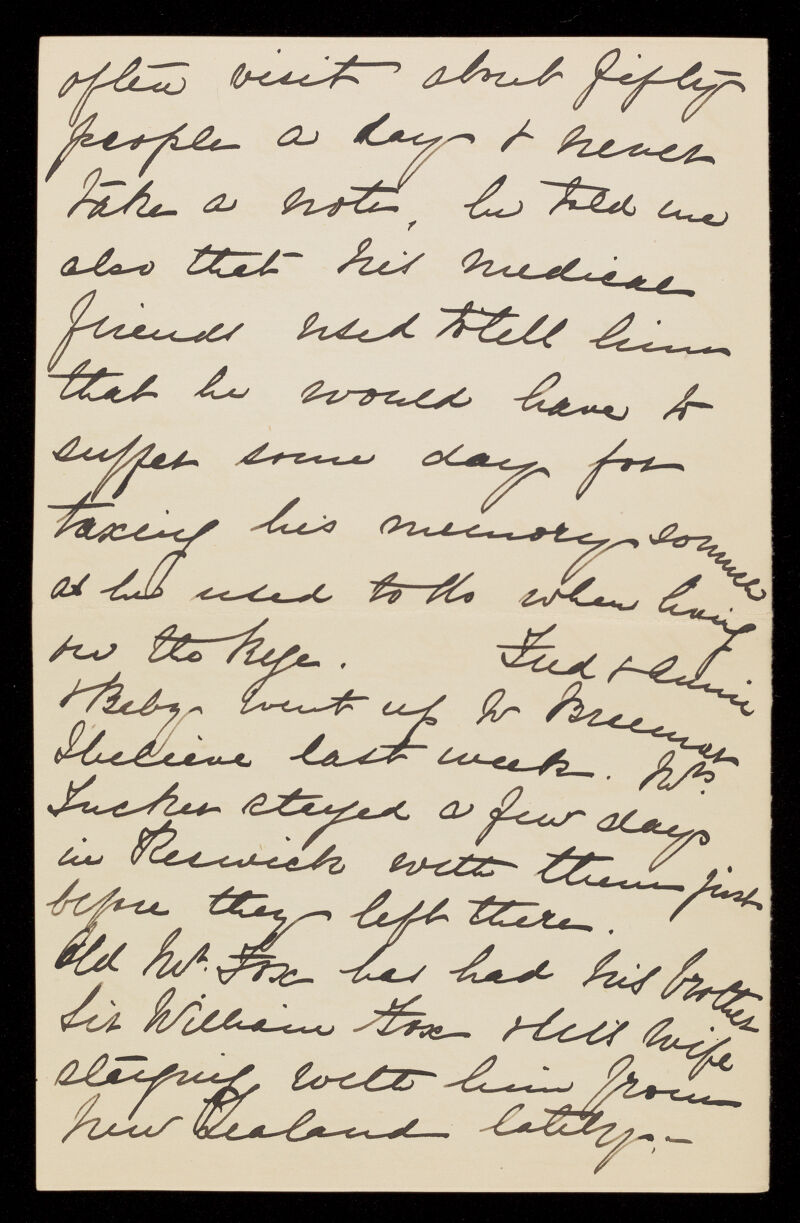 often visit about fifty
people a day & never
take a note, he told me
also that his medical
friends used to tell him
that he would have to
suffer some day for
taxing his memory so much
as he used to do when living
on the Rye. Fred & Annie
& Baby went up to Braemar
I believe last week. Mrs.
Tucker stayed a few days
in Keswick with them just
before they left there.
Old Mr. Fox has had his brother
Sir William Fox & his wife
staying with him from
New Zealand lately.-